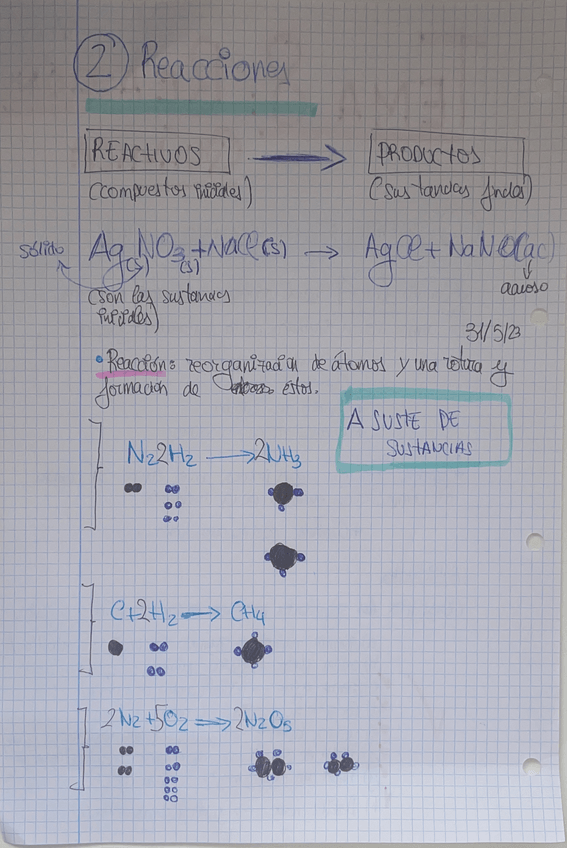 2 Reacciones
REACTIVOS → PRODUCTOS
(compuestos iniciales) (sustancias finales)
sólido AgNO3 + NaCl(s) → AgCl + NaNO(ac)
(s) (s)
acuoso
(son las sustancias
iniciales)
31/5/23
• Reacción: reorganización de átomos y una rotura y
formación de éstos.
A SUSTE DE
SUSTANCIAS
N2 2H2 → 2NH3
C+2H2 → CH4
2N2 + 5O2 ⇒ 2N2O5